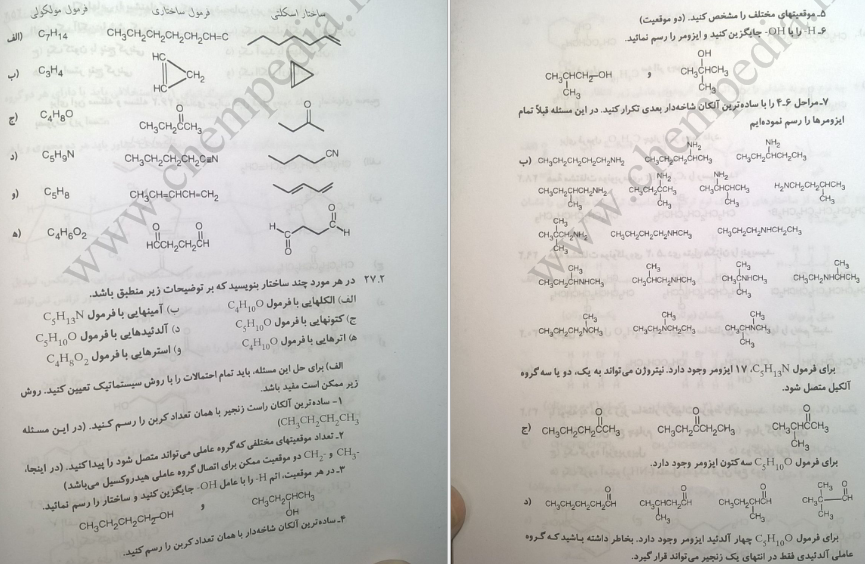 فرمول مولکولی فرمول ساختاری ساختار اسکلتی
الف) C7H14 CH3CH2CH2CH2CH2CH=C
ب) C3H4 HC HC CH2
ج) C4H8O CH3CH2CCH3 O
د) C5H9N CH3CH2CH2CH2C≡N CN
و) C5H8 CH3CH=CHCH=CH2
ه) C4H6O2 O O HCCH2CH2CH H O O H
۲۷.۲ در هر مورد چند ساختار بنویسید که بر توضیحات زیر منطبق باشد.
الف) الکلهایی با فرمول C4H10O ب) آمینهایی با فرمول C5H13N
ج) کتونهایی با فرمول C5H10O د) آلدئیدهایی با فرمول C5H10O
ه) اترهایی با فرمول C4H10O و) استرهایی با فرمول C4H8O2
الف) برای حل این مسئله، باید تمام احتمالات را با روش سیستماتیک تعیین کنید. روش
زیر ممکن است مفید باشد.
۱- ساده‌ترین آلکان راست زنجیر با همان تعداد کربن را رسم کنید. (در این مسئله
CH3CH2CH2CH3)
۲- تعداد موقعیتهای مختلفی که گروه عاملی می‌تواند متصل شود را پیدا کنید. (در اینجا،
CH3- و CH2- دو موقعیت ممکن برای اتصال گروه عاملی هیدروکسیل می‌باشد)
۳- در هر موقعیت، اتم H- را با عامل OH- جایگزین کنید و ساختار را رسم نمائید.
CH3CH2CH2CH2─OH و CH3CH2CHCH3
OH
۴- ساده‌ترین آلکان شاخه‌دار با همان تعداد کربن را رسم کنید.
۵- موقعیتهای مختلف را مشخص کنید. (دو موقعیت)
۶- H- را با OH- جایگزین کنید و ایزومر را رسم نمائید.
OH
CH3CHCH2─OH و CH3CCH3
CH3 CH3
۷- مراحل ۴-۶ را با ساده‌ترین آلکان شاخه‌دار بعدی تکرار کنید. در این مسئله قبلاً تمام
ایزومرها را رسم نموده‌ایم
NH2 NH2
ب) CH3CH2CH2CH2CH2NH2 CH3CH2CH2CHCH3 CH3CH2CHCH2CH3
NH2 NH2
CH3CH2CHCH2NH2 CH3CH2CCH3 CH3CHCHCH3 H2NCH2CH2CHCH3
CH3 CH3 CH3 CH3
CH3
CH3CCH2NH2 CH3CH2CH2CH2NHCH3 CH3CH2CH2NHCH2CH3
CH3
CH3 CH3 CH3 CH3
CH3CH2CHNHCH3 CH3CHCH2NHCH3 CH3CNHCH3 CH3CH2NHCHCH3
CH3
CH3 CH3 CH3
CH3CH2CH2NCH3 CH3CH2NCH2CH3 CH3CHNCH3
CH3
برای فرمول C5H13N، ۱۷ ایزومر وجود دارد. نیتروژن می‌تواند به یک، دو یا سه گروه
آلکیل متصل شود.
O O O
ج) CH3CH2CH2CCH3 CH3CH2CCH2CH3 CH3CHCCH3
CH3
برای فرمول C5H10O سه کتون ایزومر وجود دارد.
O O O CH3 O
د) CH3CH2CH2CH2CH CH3CHCH2CH CH3CH2CHCH CH3─ ─CH
CH3 CH3 CH3
برای فرمول C5H10O چهار آلدئید ایزومر وجود دارد. بخاطر داشته باشید که گروه
عاملی آلدئیدی فقط در انتهای یک زنجیر می‌تواند قرار گیرد.
www.chempedia.ir